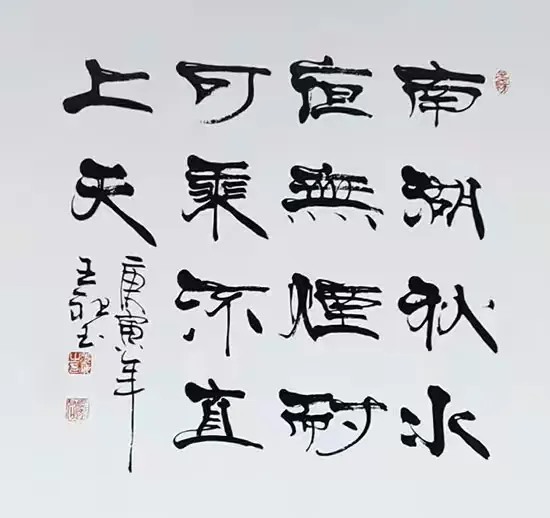 南湖秋水
亱無煙耐
可乘流直
上天
庚寅年
王